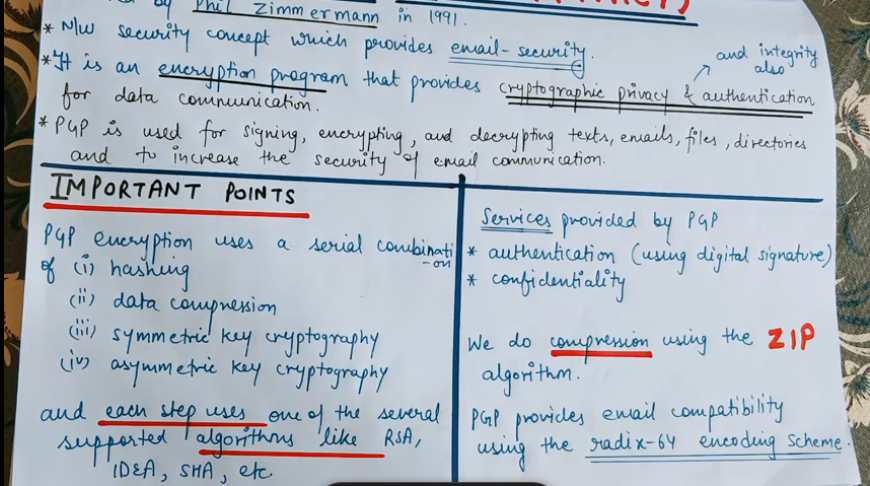 by Phil Zimmermann in 1991.
* N/W security concept which provides email-security.
* It is an encryption program that provides cryptographic privacy & authentication
and integrity
also
for data communication.
* PGP is used for signing, encrypting, and decrypting texts, emails, files, directories
and to increase the security of email communication.
IMPORTANT POINTS
PGP encryption uses a serial combinati
-on
of (i) hashing
(ii) data compression
(iii) symmetric key cryptography
(iv) asymmetric key cryptography
and each step uses one of the several
supported algorithms like RSA,
IDEA, SHA, etc
Services provided by PGP
* authentication (using digital signature)
* confidentiality
We do compression using the ZIP
algorithm.
PGP provides email compatibility
using the radix-64 encoding scheme.